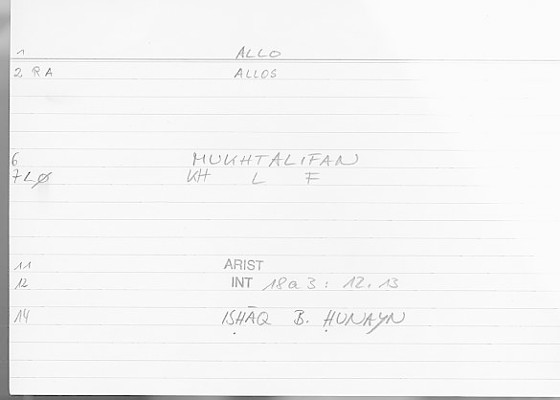 1 ALLO
2 RA ALLOS
6 MUKHTALIFAN
7 LØ KH L F
11 ARIST
12 INT 18a3 : 12.13
14 ISḤĀQ B. ḤUNAYN